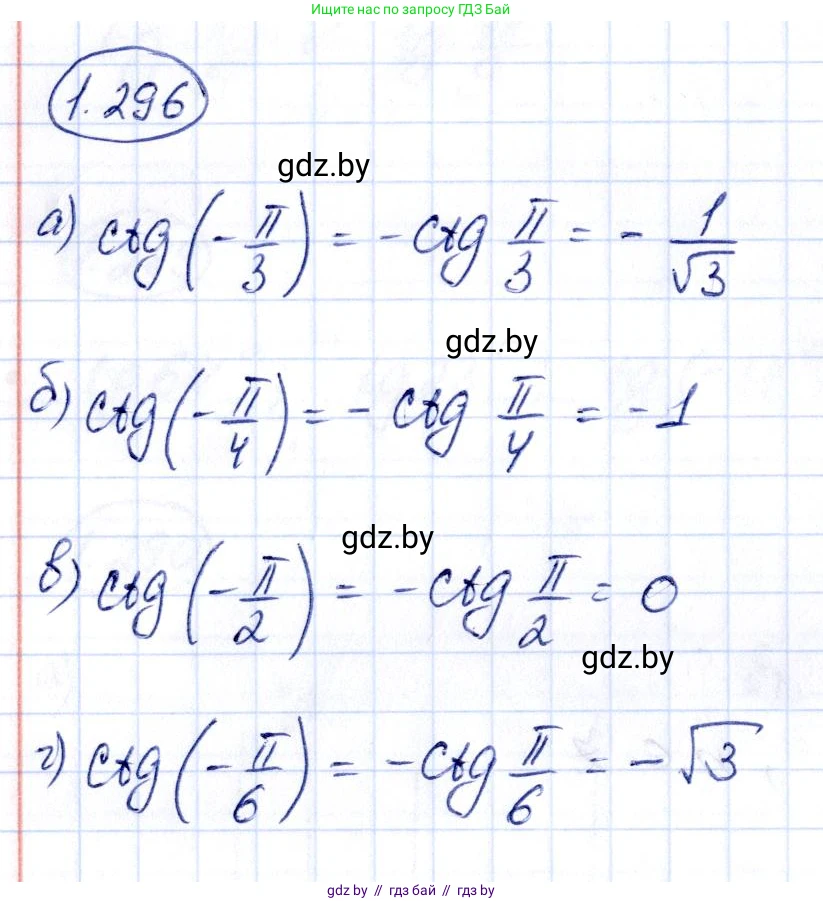 Ищите нас по запросу ГДЗ Бай
1.296
gdz.by
а) ctg(-π/3) = -ctg π/3 = - 1/√3
gdz.by
б) ctg(-π/4) = - ctg π/4 = -1
gdz.by
в) ctg(-π/2) = -ctg π/2 = 0
gdz.by
г) ctg(-π/6) = -ctg π/6 = -√3
gdz by // гдз бай // гдз by